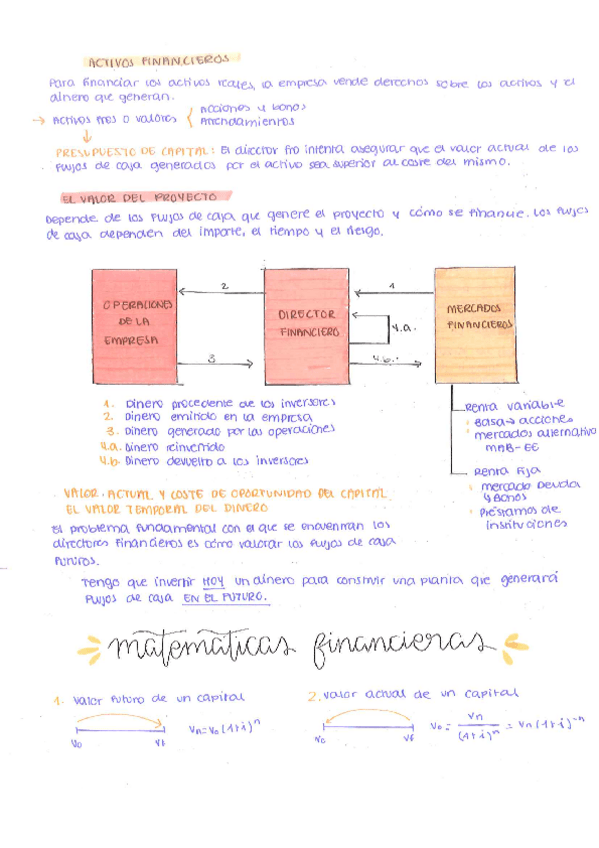 ACTIVOS FINANCIEROS
Para financiar los activos reales, la empresa vende derechos sobre los activos y el
dinero que generan.
→ Activos fros o valores { Acciones y bonos
Arrendamientos
PRESUPUESTO DE CAPITAL: El director fro intenta asegurar que el valor actual de los
flujos de caja generados por el activo sea superior al coste del mismo.
EL VALOR DEL PROYECTO
Depende de los flujos de caja que genere el proyecto y cómo se financie. Los flujos
de caja dependen del importe, el tiempo y el riesgo.
OPERACIONES
DE LA
EMPRESA
2
3
DIRECTOR
FINANCIERO
1
4.a.
4.b.
MERCADOS
FINANCIEROS
1. Dinero procedente de los inversores
2. Dinero emitido en la empresa
3. Dinero generado por las operaciones
4.a. Dinero reinvertido
4.b. Dinero devuelto a los inversores
Renta variable
Bolsa → acciones
mercados alternativo
MAB-EE
Renta fija
mercado Deuda
↳ Bonos
Préstamos de
instituciones
VALOR ACTUAL Y COSTE DE OPORTUNIDAD DEL CAPITAL
EL VALOR TEMPORAL DEL DINERO
El problema fundamental con el que se encuentran los
directores financieros es cómo valorar los flujos de caja
futuros.
Tengo que invertir HOY un dinero para construir una planta que generará
flujos de caja EN EL FUTURO.
matemáticas financieras
1. Valor futuro de un capital
V0 Vf
Vn=V0(1+i)^n
2. Valor actual de un capital
V0 Vf
V0 = Vn/(1+i)^n = Vn(1+i)^-n